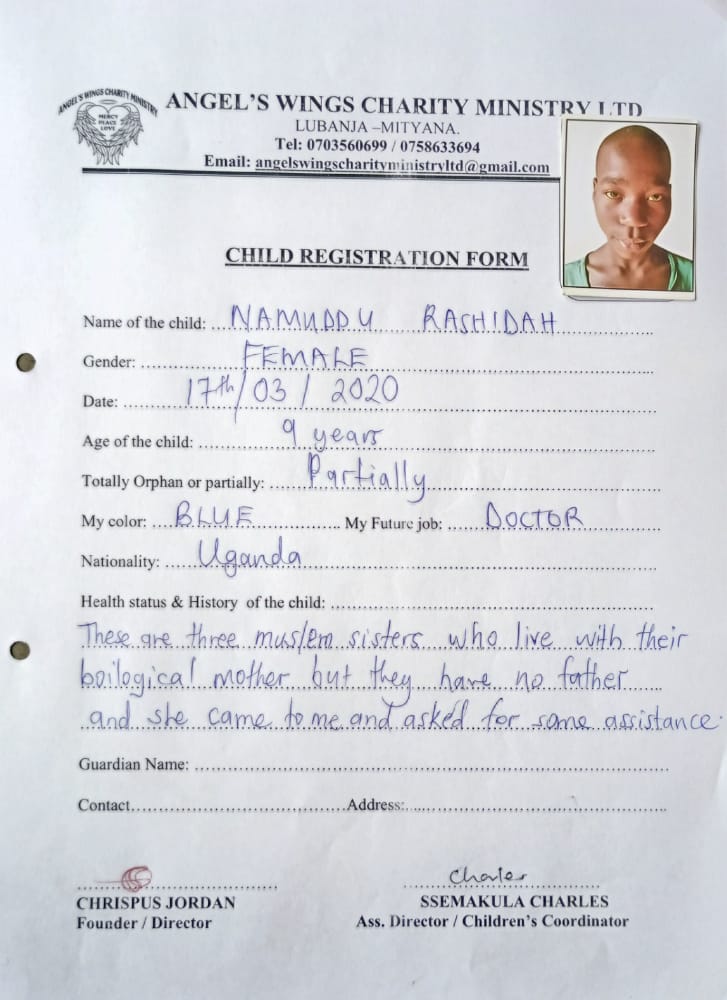 ANGEL'S WINGS CHARITY MINISTRY
MERCY
PEACE
LOVE
ANGEL'S WINGS CHARITY MINISTRY LTD
LUBANJA –MITYANA.
Tel: 0703560699 / 0758633694
Email: angelswingscharityministryltd@gmail.com
CHILD REGISTRATION FORM
Name of the child: NAMUDDU RASHIDAH
Gender: FEMALE
Date: 17th/03/2020
Age of the child: 9 years
Totally Orphan or partially: Partially
My color: BLUE My Future job: DOCTOR
Nationality: Uganda
Health status & History of the child:
These are three muslem sisters who live with their
boilogical mother but they have no father
and she came to me and asked for some assistance.
Guardian Name:
Contact Address:
Charles
CHRISPUS JORDAN SSEMAKULA CHARLES
Founder / Director Ass. Director / Children's Coordinator